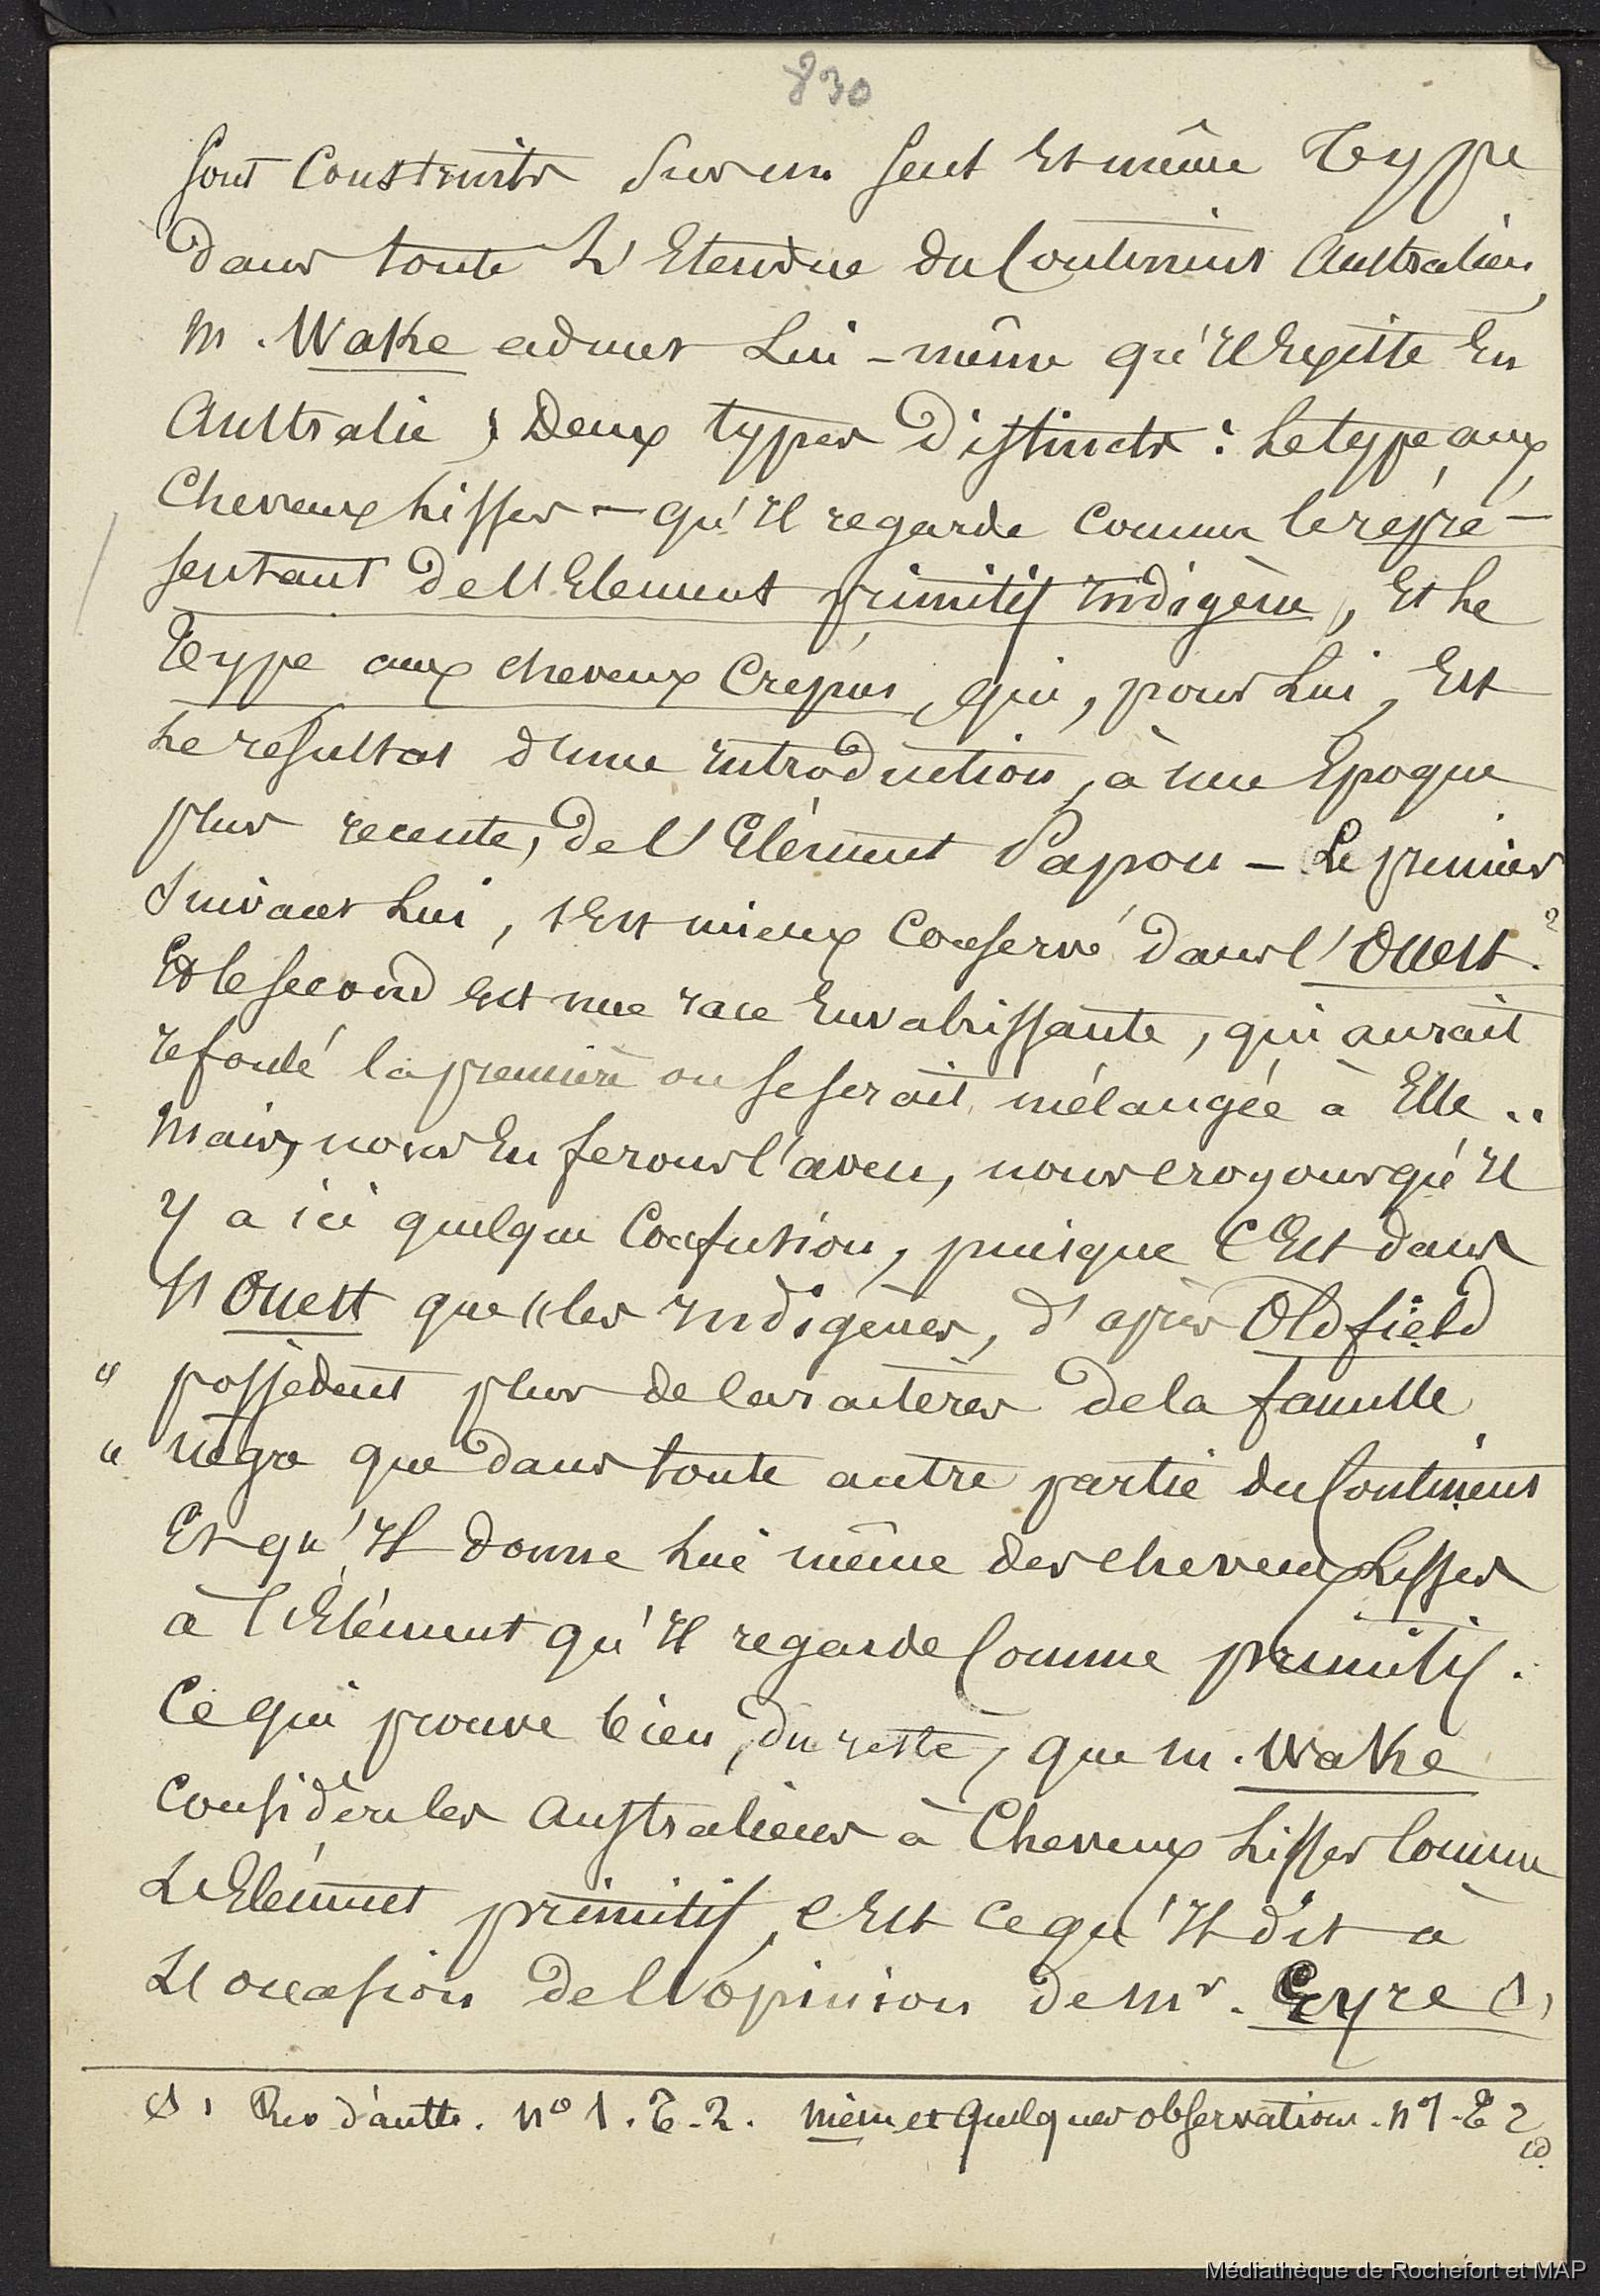 830
sont Construits sur un seul Et même Type
dans toute L'Etendue du Continent Australien,
M. Wake admet Lui-même qu'Il Existe En
Australie, Deux types Distincts : Le type aux
Cheveux Lisses - qu'Il regarde comme le repré-
sentant de l'Element primitif Indigène, Et Le
Type aux cheveux Crépus, qui, pour Lui, Est
Le resultat d'une Introduction, à une Epoque
plus recente, de l'Elément Papou - Le premier
Suivant Lui, s'Est mieux Conservé dans l'Ouest.
Et le second Est une race Envahissante, qui aurait
refoulé la première ou se serait mélangée à Elle ..
Mais, nous En ferons l'aveu, nous croyons qu'Il
Y a ici quelque Confusion, puisque c'Est dans
L'Ouest que "les Indigènes, d'après Oldfield
" possèdent plus de Caractères de la famille
" nègre que dans toute autre partie du Continent
Et qu'Il donne Lui même des cheveux Lisses
à l'Elément qu'Il regarde Comme primitif.
Ce qui prouve bien, du reste, que M. Wake
Considère les Australiens à Cheveux Lisses Comme
L'Elément primitif, c'Est ce qu'Il dit à
L'occasion de l'opinion de Mr. Eyre (1)
(1) Rev d'anth. n° 1. T. 2. Mém et quelques observations. n° 1. T 2
id.
Médiathèque de Rochefort et MAP